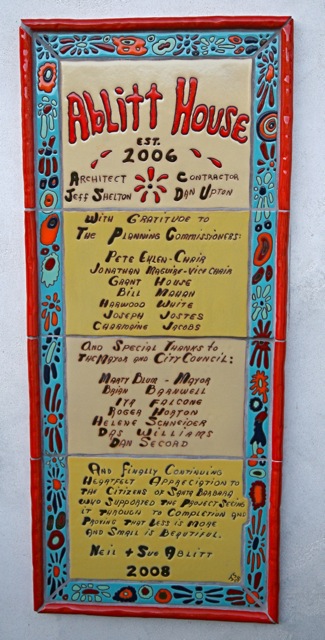 Ablitt House
EST.
2006
Architect Contractor
Jeff Shelton Dan Upton
With Gratitude to
The Planning Commissioners:
Pete Ehlen-Chair
Jonathan Maguire-Vice Chair
Grant House
Bill Mahan
Harwood White
Joseph Jostes
Charmaine Jacobs
And Special Thanks to
The Mayor and City Council:
Marty Blum - Mayor
Brian Barnwell
Iya Falcone
Roger Horton
Helene Schneider
Das Williams
Dan Secord
And Finally Continuing
Heartfelt Appreciation to
the Citizens of Santa Barbara
who Supported the Project Seeing
it through to Completion and
Proving that Less is More
and Small is Beautiful.
Neil + Sue Ablitt
2008